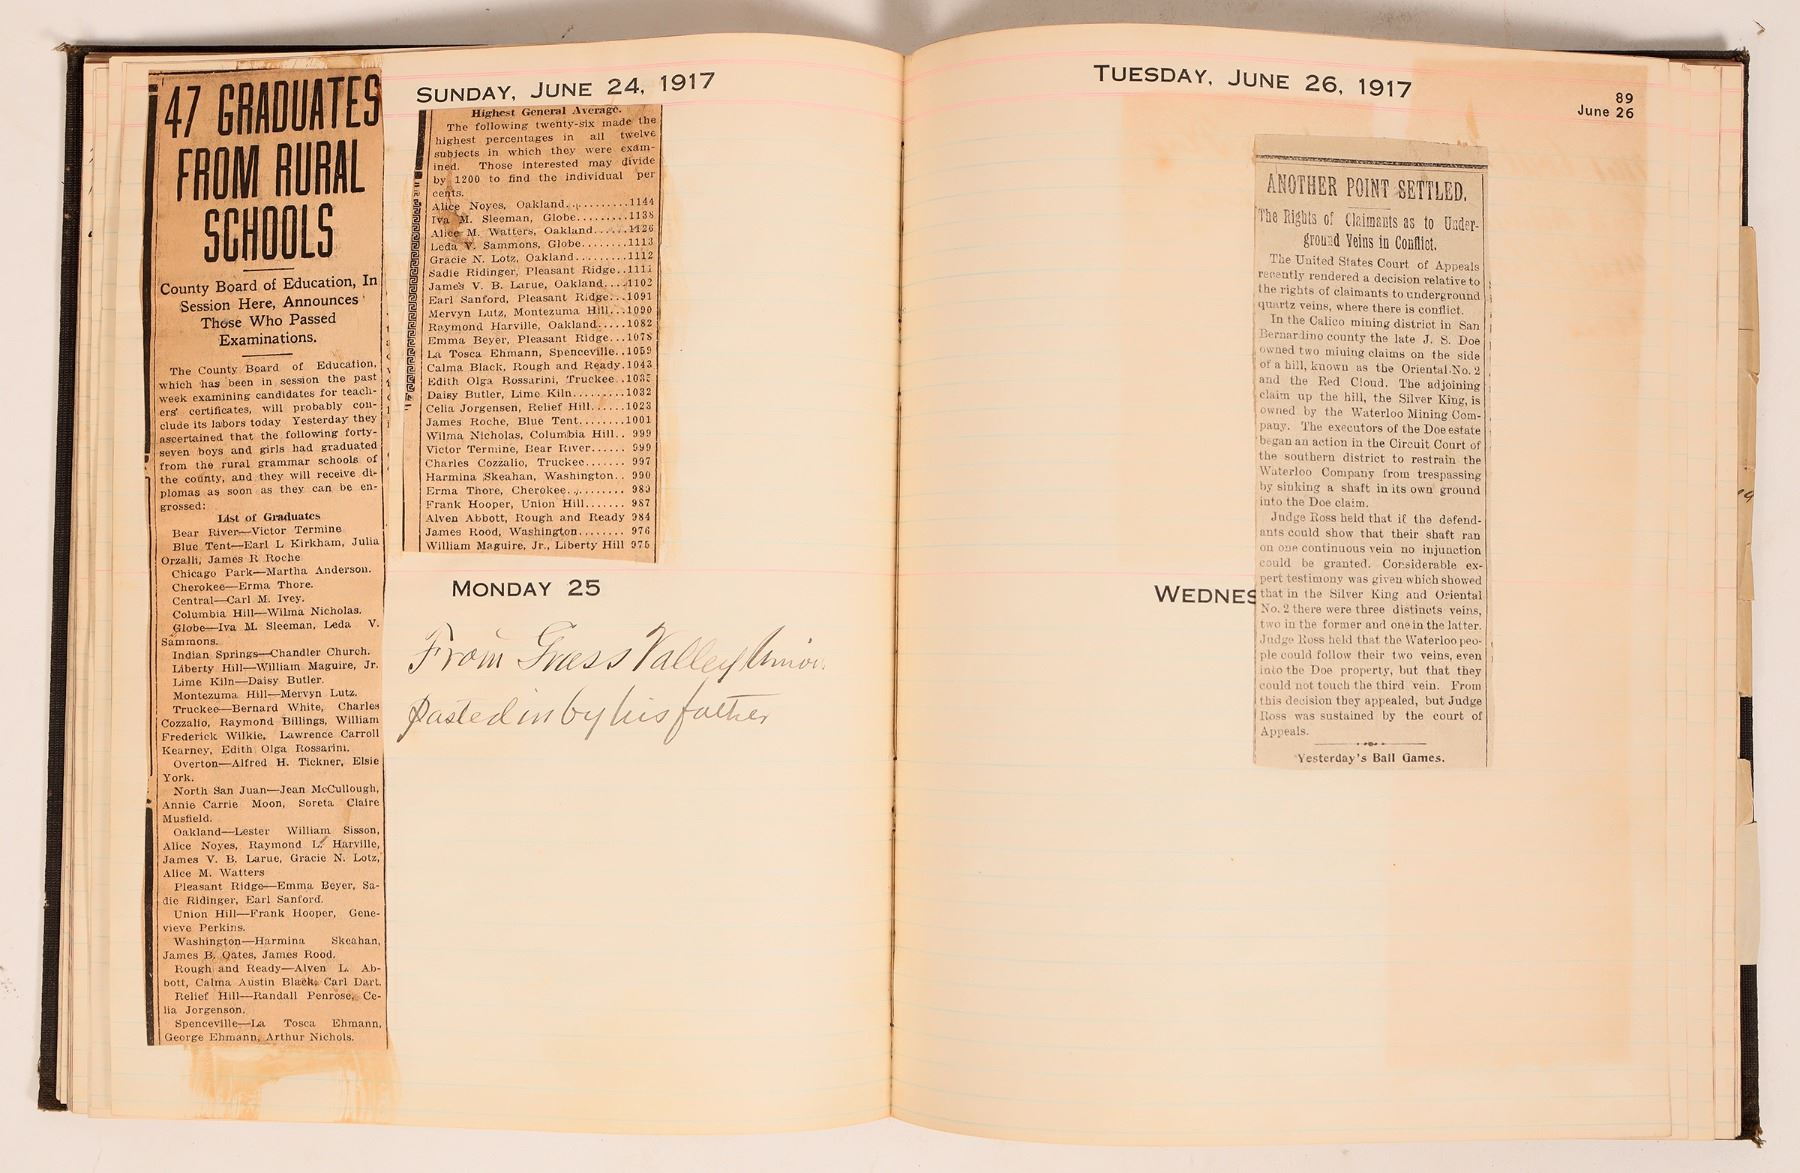 47 GRADUATES
FROM RURAL
SCHOOLS
County Board of Education, In
Session Here, Announces
Those Who Passed
Examinations.
The County Board of Education,
which has been in session the past
week examining candidates for teach-
ers' certificates, will probably con-
clude its labors today Yesterday they
ascertained that the following forty-
seven boys and girls had graduated
from the rural grammar schools of
the county, and they will receive di-
plomas as soon as they can be en-
grossed:
List of Graduates
Bear River—Victor Termine
Blue Tent—Earl L Kirkham, Julia
Orzalli, James R Roche
Chicago Park—Martha Anderson.
Cherokee—Erma Thore.
Central—Carl M. Ivey.
Columbia Hill—Wilma Nicholas.
Globe—Iva M. Sleeman, Leda V.
Sammons.
Indian Springs—Chandler Church.
Liberty Hill—William Maguire, Jr.
Lime Kiln—Daisy Butler.
Montezuma Hill—Mervyn Lutz.
Truckee—Bernard White, Charles
Cozzalio, Raymond Billings, William
Frederick Wilkie, Lawrence Carroll
Kearney, Edith Olga Rossarini.
Overton—Alfred H. Tickner, Elsie
York.
North San Juan—Jean McCullough,
Annie Carrie Moon, Soreta Claire
Musfield.
Oakland—Lester William Sisson,
Alice Noyes, Raymond L. Harville,
James V. B. Larue, Gracie N. Lotz,
Alice M. Watters
Pleasant Ridge—Emma Beyer, Sa-
die Ridinger, Earl Sanford.
Union Hill—Frank Hooper, Gene-
vieve Perkins.
Washington—Harmina Skeahan,
James B. Oates, James Rood.
Rough and Ready—Alven L. Ab-
bott, Calma Austin Black, Carl Dart.
Relief Hill—Randall Penrose, Ce-
lia Jorgenson.
Spenceville—La Tosca Ehmann,
George Ehmann, Arthur Nichols.
SUNDAY, JUNE 24, 1917
Highest General Average.
The following twenty-six made the
highest percentages in all twelve
subjects in which they were exam-
ined. Those interested may divide
by 1200 to find the individual per
cents.
Alice Noyes, Oakland..........1144
Iva M. Sleeman, Globe.........1138
Alice M. Watters, Oakland......1126
Leda V. Sammons, Globe........1113
Gracie N. Lotz, Oakland.........1112
Sadie Ridinger, Pleasant Ridge..1111
James V. B. Larue, Oakland....1102
Earl Sanford, Pleasant Ridge...1091
Mervyn Lutz, Montezuma Hill...1090
Raymond Harville, Oakland.....1082
Emma Beyer, Pleasant Ridge...1078
La Tosca Ehmann, Spenceville..1059
Calma Black, Rough and Ready.1043
Edith Olga Rossarini, Truckee
Daisy Butler, Lime Kiln.........1032
Celia Jorgensen, Relief Hill......1023
James Roche, Blue Tent........1001
Wilma Nicholas, Columbia Hill.. 999
Victor Termine, Bear River...... 999
Charles Cozzalio, Truckee....... 997
Harmina Skeahan, Washington.. 990
Erma Thore, Cherokee.......... 989
Frank Hooper, Union Hill....... 987
Alven Abbott, Rough and Ready 984
James Rood, Washington........ 976
William Maguire, Jr., Liberty Hill 975
MONDAY 25
From Grass Valley Union
pasted in by his father
TUESDAY, JUNE 26, 1917
89
June 26
ANOTHER POINT SETTLED.
The Rights of Claimants as to Under-
ground Veins in Conflict.
The United States Court of Appeals
recently rendered a decision relative to
the rights of claimants to underground
quartz veins, where there is conflict.
In the Calico mining district in San
Bernardino county the late J. S. Doe
owned two mining claims on the side
of a hill, known as the Oriental No. 2
and the Red Cloud. The adjoining
claim up the hill, the Silver King, is
owned by the Waterloo Mining Com-
pany. The executors of the Doe estate
began an action in the Circuit Court of
the southern district to restrain the
Waterloo Company from trespassing
by sinking a shaft in its own ground
into the Doe claim.
Judge Ross held that if the defend-
ants could show that their shaft ran
on one continuous vein no injunction
could be granted. Considerable ex-
pert testimony was given which showed
that in the Silver King and Oriental
No. 2 there were three distincts veins,
two in the former and one in the latter.
Judge Ross held that the Waterloo peo-
ple could follow their two veins, even
into the Doe property, but that they
could not touch the third vein. From
this decision they appealed, but Judge
Ross was sustained by the court of
Appeals.
Yesterday's Ball Games.
WEDNES